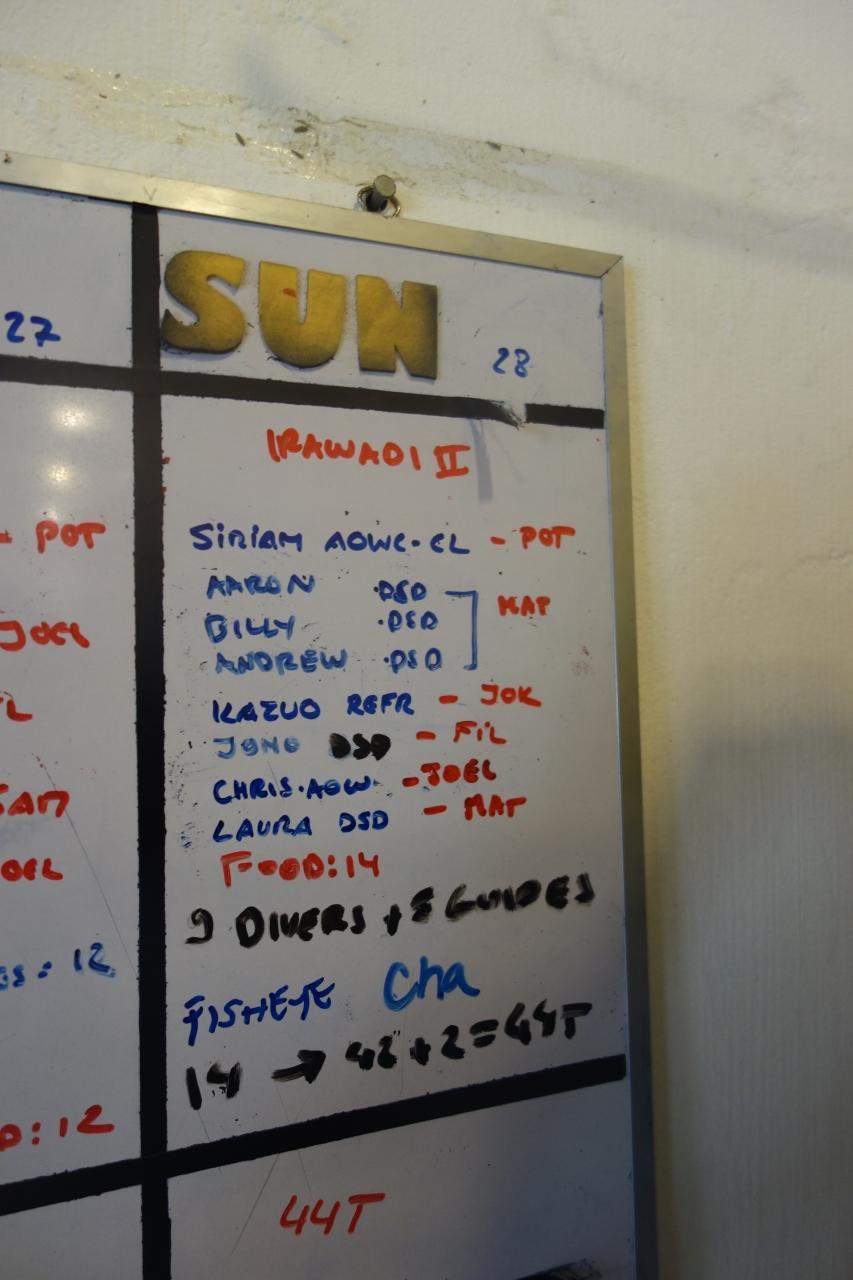 27
SUN 28
IRAWADI II
- POT
SIRIAM AOWC-CL - POT
AARON .DSD
BILLY .DSD MAT
ANDREW .DSD
JOEL
KAZUO REFR - JOK
JONO DSD - FIL
CHRIS.AOW. - JOEL
SAM
LAURA DSD - MAT
OEL
FOOD:14
9 DIVERS + 5 GUIDES
: 12
FISHEYE Cha
14 → 42 + 2 = 44T
D:12
44T